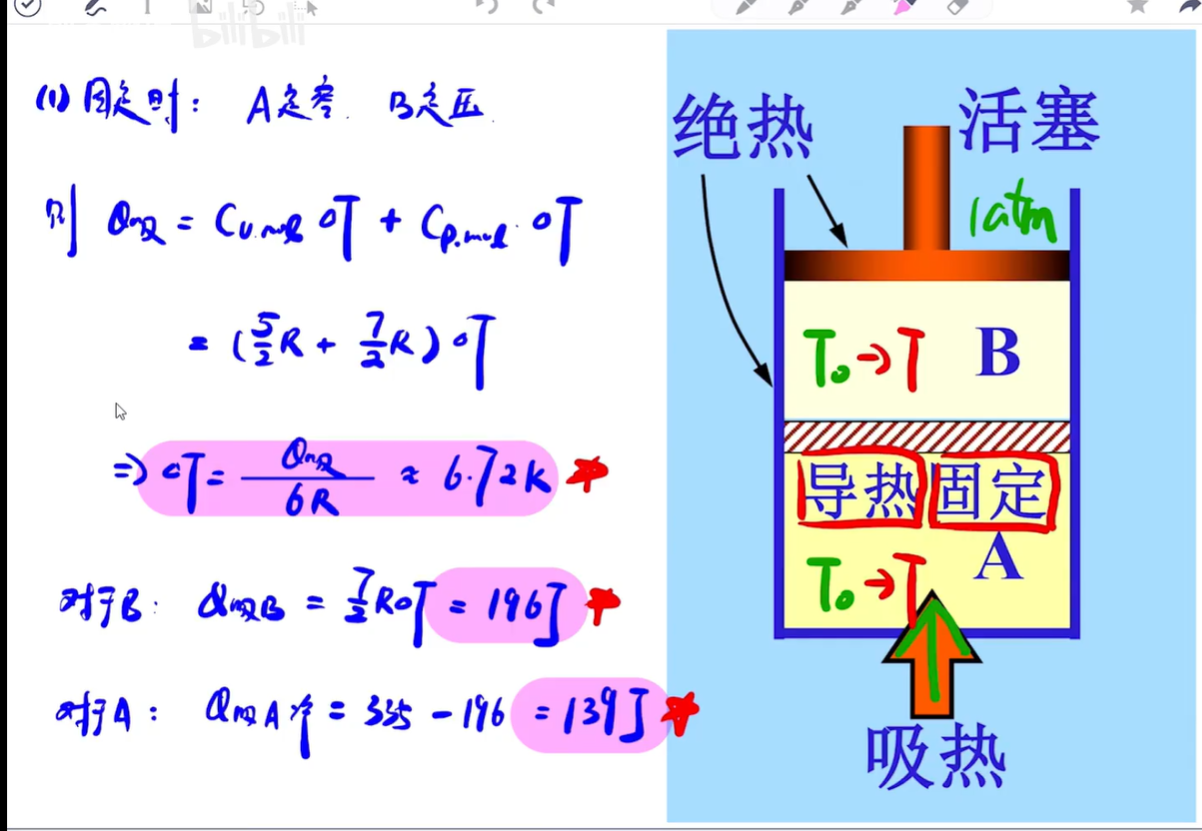 bilibili
(1) 固定时： A定容. B定压.
则 Q吸 = Cv.mol ΔT + Cp.mol · ΔT
= (5/2 R + 7/2 R) ΔT
=> ΔT = Q吸 / 6R ≈ 6.72K
对于B： Q吸B = 7/2 RΔT = 196J
对于A： Q吸A净 = 335 - 196 = 139J
绝热
活塞
1atm
T₀→T B
导热 固定
A
T₀→T
吸热